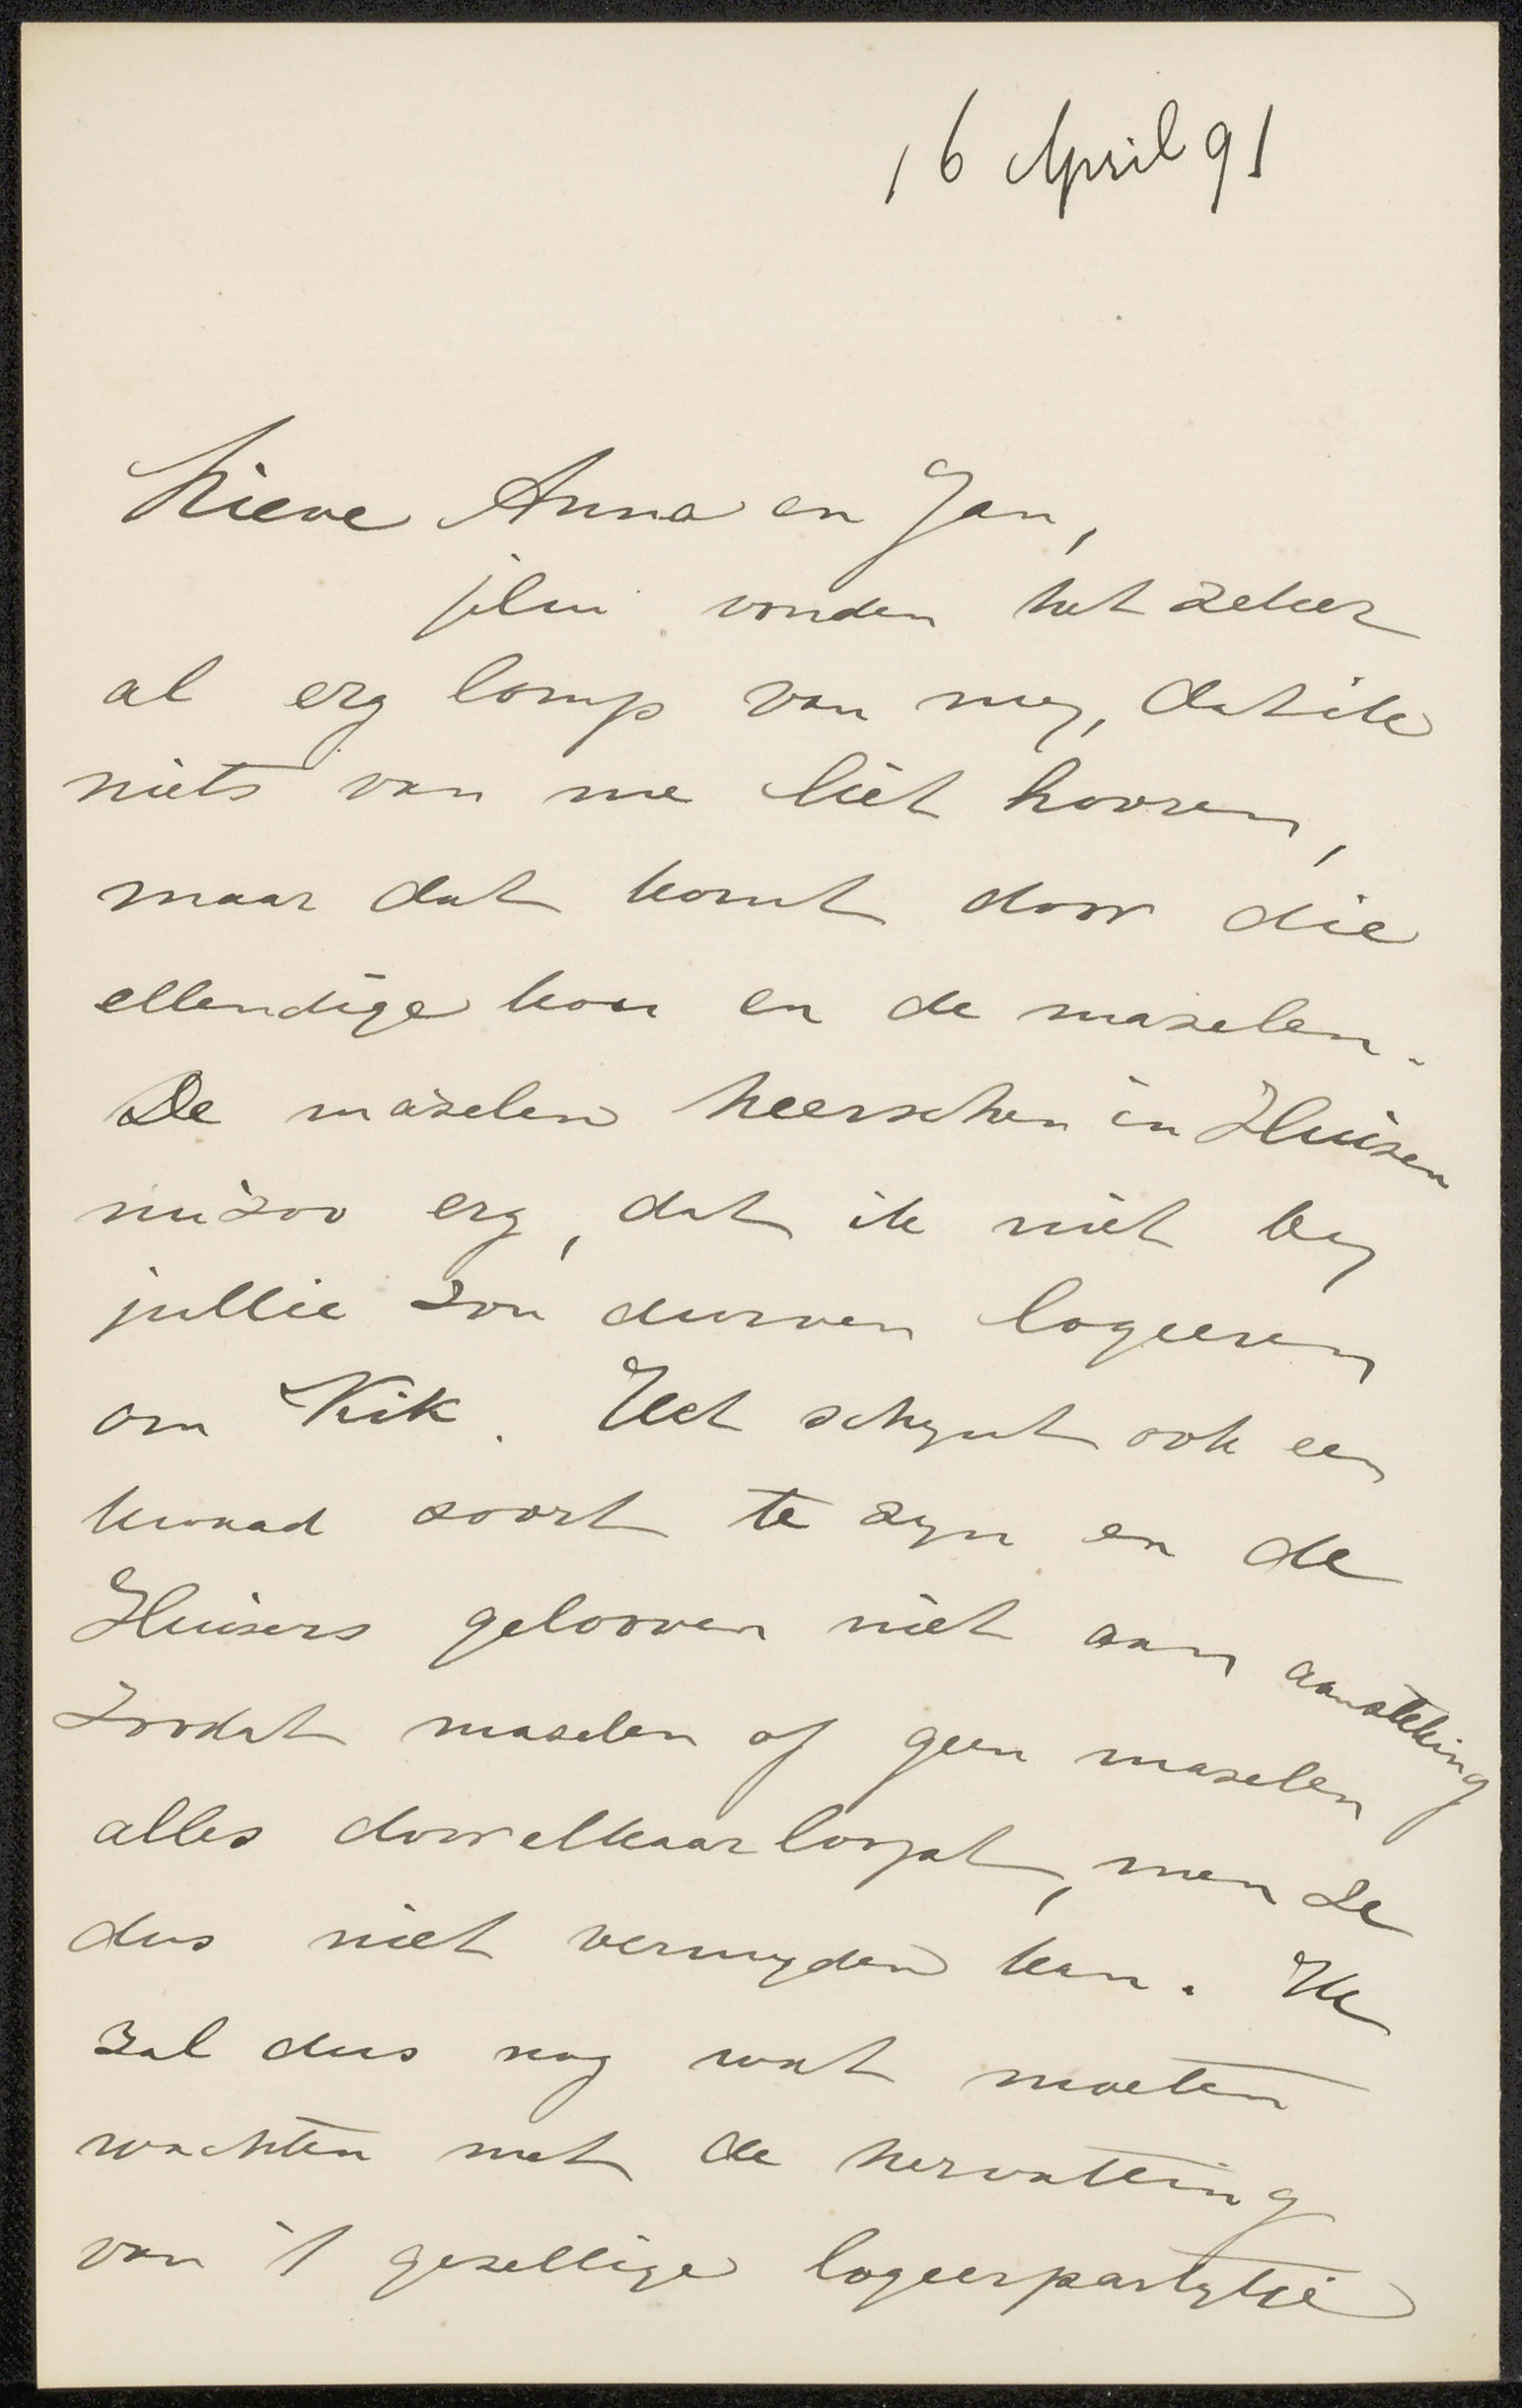 16 April 91
Lieve Anna en Jan,
jelui vonden het zeker
al erg lomp van my, dat ik
niets van me liet hooren,
maar dat komt door die
ellendige kou en de mazelen.
De mazelen heerschen in Huizen
nu zoo erg, dat ik niet by
jullie zou durven logeeren
om Kik. Het schynt ook een
kwaad soort te zyn en de
Huizers gelooven niet aan aansteking
zoodat mazelen of geen mazelen
alles door elkaar loopt, men ze
dus niet vermyden kan. Ik
zal dus nog wat moeten
wachten met de hervatting
van 't gezellige logeerpartytje